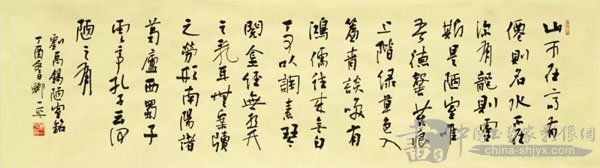 山不在高有
僊則名水不在
深有龍則靈
斯是陋室惟
吾德馨苔痕
上階绿草色入
簾青談咲有
鴻儒往来無白
丁可以調素琴
閱金経無丝竹
之乱耳無案牘
之勞形南陽諸
葛廬西蜀子
雲亭孔子云何
陋之有
劉禹錫陋室銘
丁酉
中国书画家影像网
www.china-shjyx.com